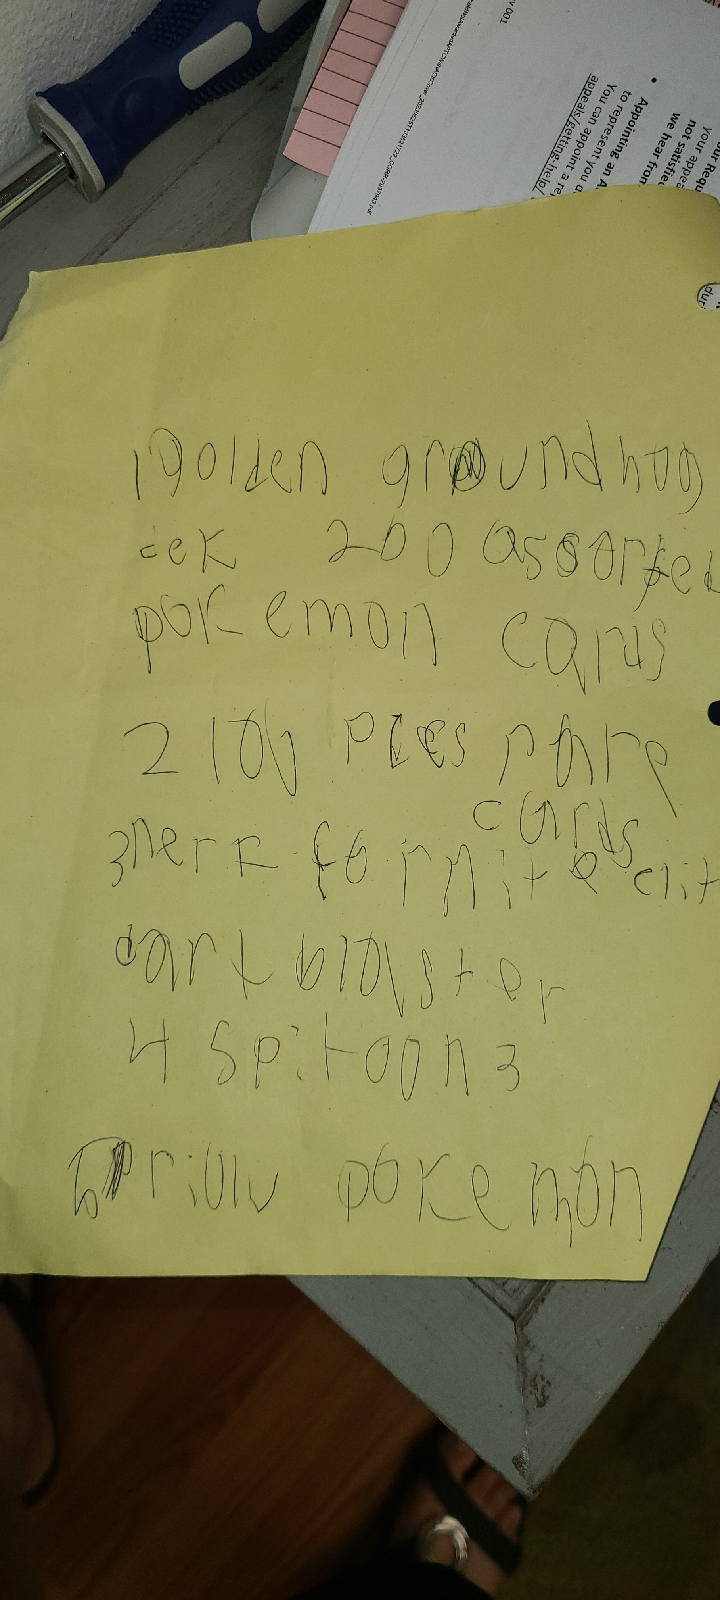 v 001
our Requ
your appea
not satisfied
we hear from
• Appointing an A
to represent you d
You can appoint a re
appeals/getting-help/
dur
1 Golden groundhog
dek 200 assorted
pokemon cards
2 100 pices rare
cards
3 nerf fornite elit
dart blaster
4 Spitoon 3
5 pokemon